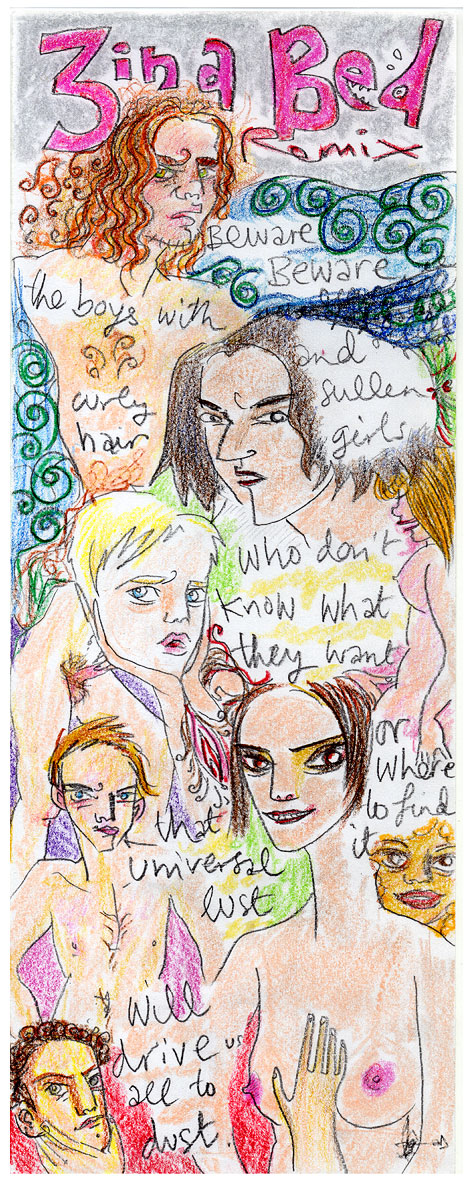 3 in a Bed
Remix
Beware
Beware
the boys with
curly
hair
and
sullen
girls
who don't
know what
they want
or
where
to find
it
that
universal
lust
will
drive us
all to
dust.